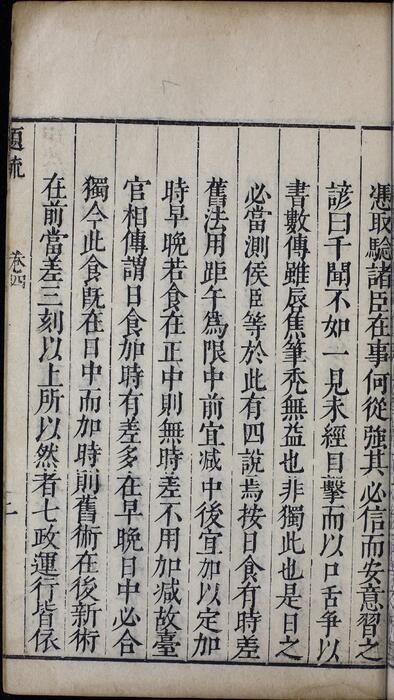 憑取驗諸臣在事何從強其必信而安意習之
諺曰千聞不如一見未經目擊而以口舌爭以
書數傳雖唇焦筆禿無益也非獨此也是日之
必當測候臣等於此有四說焉按日食有時差
舊法用距午為限中前宜減中後宜加以定加
時早晚若食在正中則無時差不用加減故臺
官相傳謂日食加時有差多在早晚日中必合
獨今此食既在日中而加時前舊術在後新術
在前當差三刻以上所以然者七政運行皆依
卷四